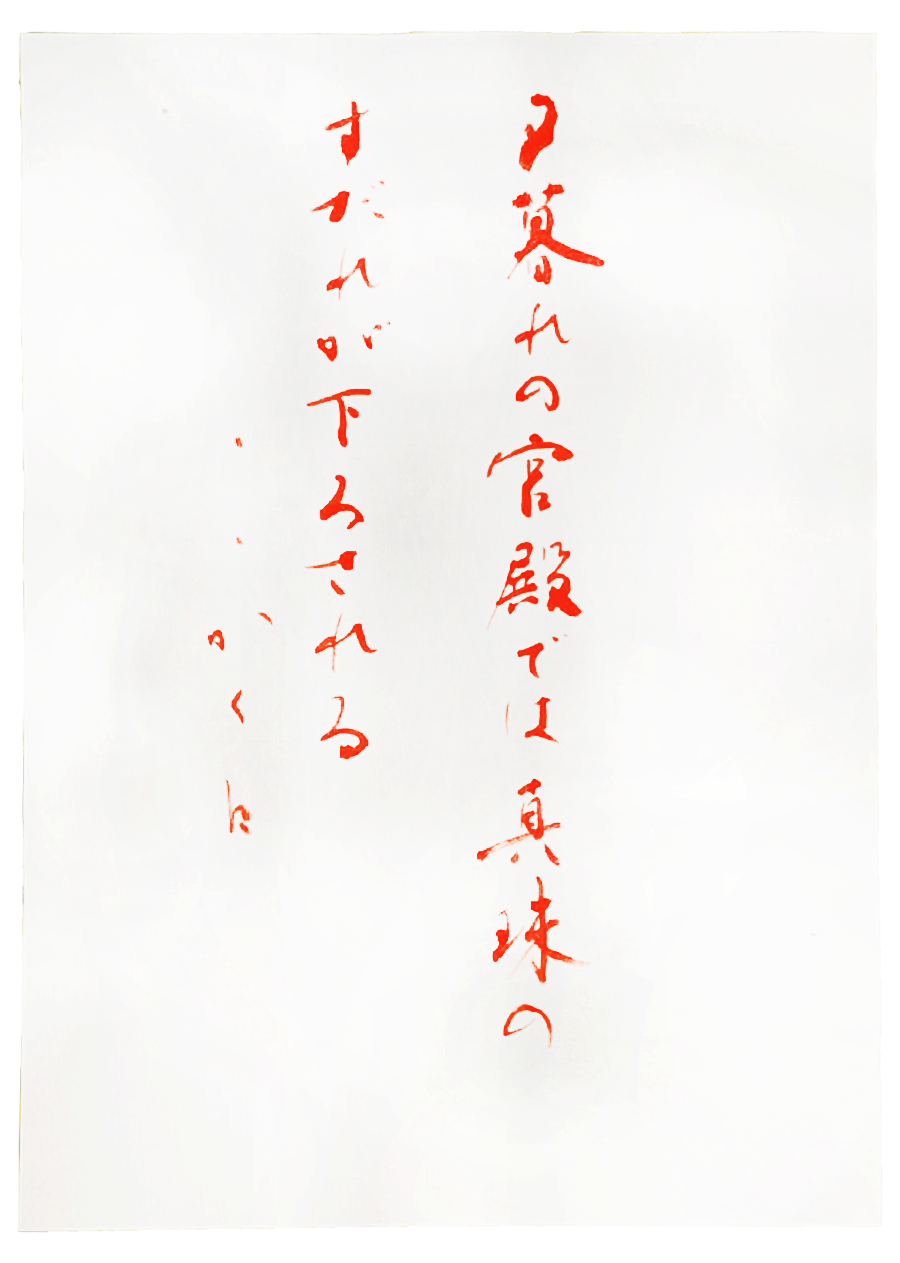 日暮れの宮殿では真珠の
すだれが下ろされる
かくに